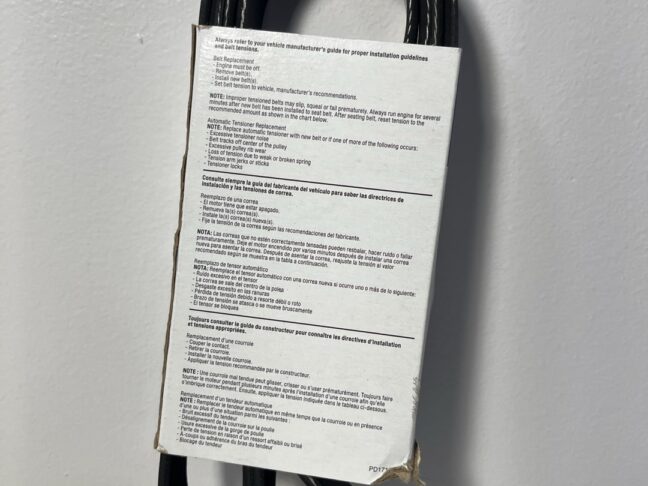 Always refer to your vehicle manufacturer's guide for proper installation guidelines
and belt tensions.
Belt Replacement
- Engine must be off.
- Remove belt(s).
- Install new belt(s).
- Set belt tension to vehicle, manufacturer's recommendations.
NOTE: Improper tensioned belts may slip, squeal or fail prematurely. Always run engine for several
minutes after new belt has been installed to seat belt. After seating belt, reset tension to the
recommended amount as shown in the chart below.
Automatic Tensioner Replacement
NOTE: Replace automatic tensioner with new belt or if one of more of the following occurs:
- Excessive tensioner noise
- Belt tracks off center of the pulley
- Excessive pulley rib wear
- Loss of tension due to weak or broken spring
- Tension arm jerks or sticks
- Tensioner locks
Consulte siempre la guía del fabricante del vehículo para saber las directrices de
instalación y las tensiones de correa.
Reemplazo de una correa
- El motor tiene que estar apagado.
- Remueva la(s) correa(s).
- Instale la(s) correa(s) nueva(s).
- Fije la tensión de la correa según las recomendaciones del fabricante.
NOTA: Las correas que no estén correctamente tensadas pueden resbalar, hacer ruido o fallar
prematuramente. Deje el motor encendido por varios minutos después de instalar una correa
nueva para asentar la correa. Después de asentar la correa, reajuste la tensión al valor
recomendado según se muestra en la tabla a continuación.
Reemplazo de tensor automático
NOTA: Reemplace el tensor automático con una correa nueva si ocurre uno o más de lo siguiente:
- Ruido excesivo en el tensor
- La correa se sale del centro de la polea
- Desgaste excesivo en las ranuras
- Pérdida de tensión debido a resorte débil o roto
- Brazo de tensión se atasca o se mueve bruscamente
- El tensor se bloquea
Toujours consulter le guide du constructeur pour connaître les directives d'installation
et tensions appropriées.
Remplacement d'une courroie
- Couper le contact.
- Retirer la courroie.
- Installer la nouvelle courroie.
- Appliquer la tension recommandée par le constructeur.
NOTE : Une courroie mal tendue peut glisser, crisser ou s'user prématurément. Toujours faire
tourner le moteur pendant plusieurs minutes après l'installation d'une courroie afin qu'elle
s'imbrique correctement. Ensuite, appliquer la tension indiquée dans le tableau ci-dessous.
Remplacement d'un tendeur automatique
NOTE : Remplacer le tendeur automatique en même temps que la courroie ou en présence
d'une ou plus d'une situation parmi les suivantes :
- Bruit excessif du tendeur
- Désalignement de la courroie sur la poulie
- Usure excessive de la gorge de poulie
- Perte de tension en raison d'un ressort affaibli ou brisé
- À-coups ou adhérence du bras du tendeur
- Blocage du tendeur